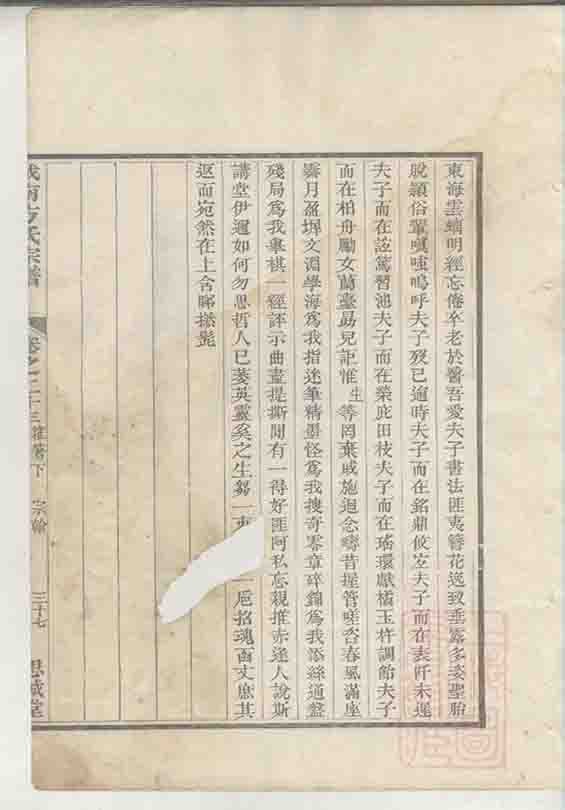 東海雲螭明經忘倦卒老於醫吾愛夫子書法匪夷簪花逸致垂露多姿聖胎
脫穎俗輩嘆嗤嗚呼夫子歿已逾時夫子而在銘鼎攸宏夫子而在表阡未遲
夫子而在誼篤習池夫子而在榮庇田枝夫子而在瑤環獻橘玉杵調飴夫子
而在柏舟勵女蘭臺勗兒詎惟生等罔棄戚施追念疇昔握管嗟咨春風滿座
霽月盈墀文淵學海為我指迷筆精墨怪為我搜奇零章碎錦為我添絲通盤
殘局為我舉棋一經評示曲盡提撕間有一得好匪阿私忘親推赤逢人說斯
講堂伊邇如何勿思哲人已萎英靈矣之生芻一束一卮招魂百丈庶其
返而宛然在上含睇撚髭
城南方氏宗譜
卷之二十三雜著下 宗翰 三十七
思誠堂